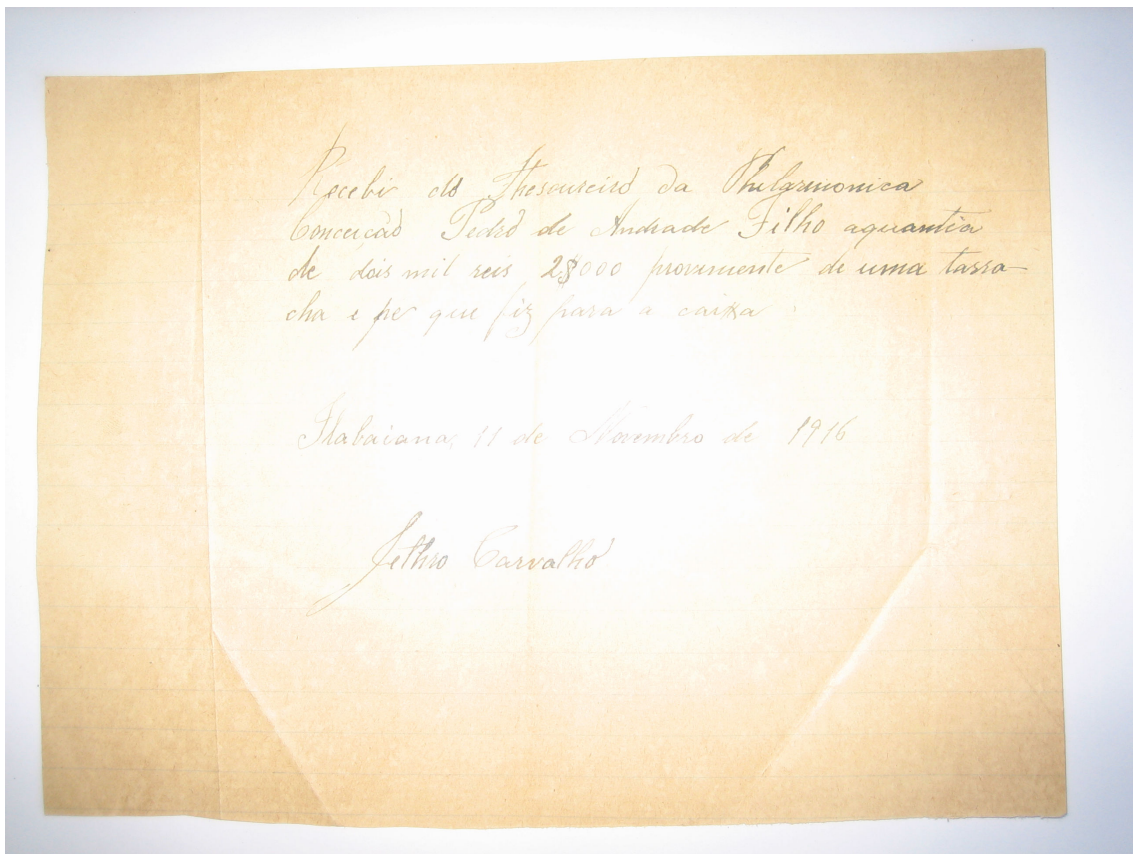 Recebi do Thesoureiro da Philarmonica
Conceição Pedro de Andrade Filho aquantia
de dois mil reis 2$000 proveniente de uma tarra-
cha e pe que fiz para a caixa
Itabaiana, 11 de Novembro de 1916
Jethro Carvalho